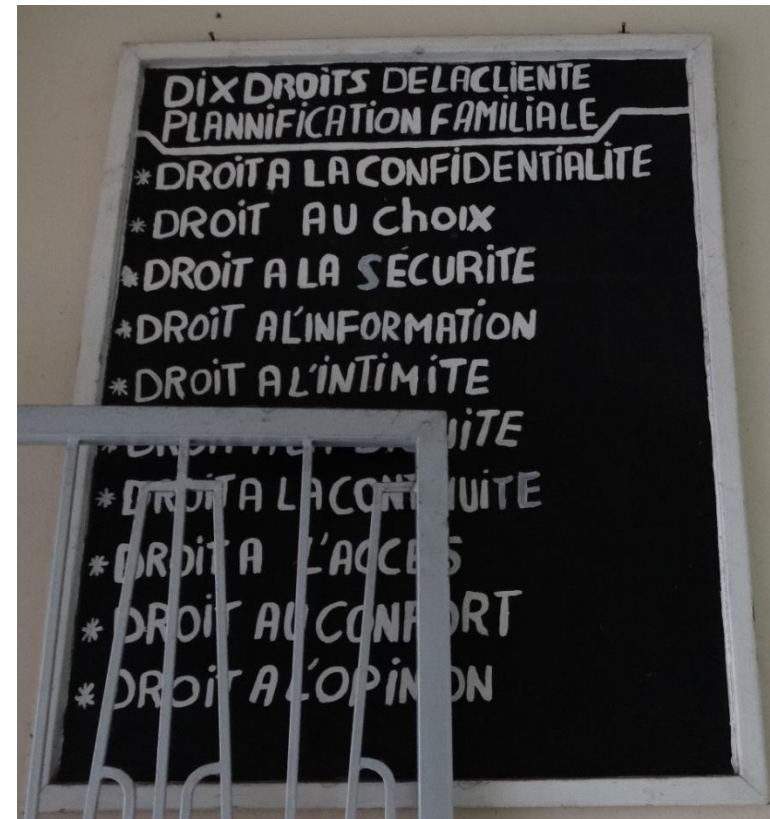 DIX DROITS DE LA CLIENTE
PLANNIFICATION FAMILIALE
*DROIT A LA CONFIDENTIALITE
*DROIT AU choix
*DROIT A LA SÉCURITE
*DROIT A L'INFORMATION
*DROIT A L'INTIMITE
*DROIT A LA
*DROIT A LA CONTINUITE
*DROIT A L'ACCES
*DROIT AU CONFORT
*DROIT A L'OPINION